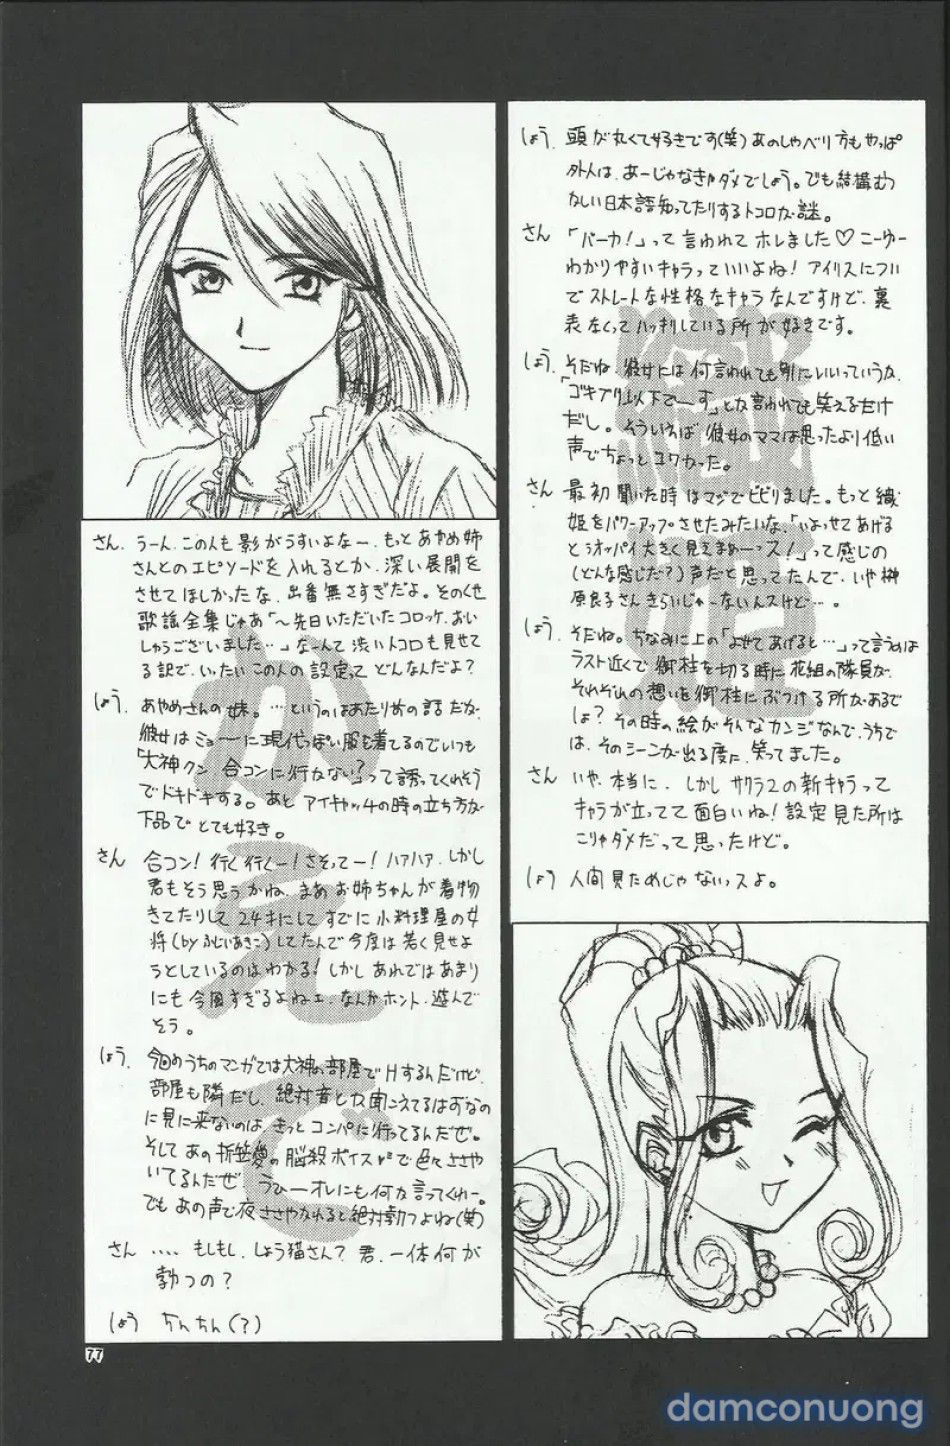 しょう、頭が丸くて好きです(笑)あのしゃべり方もやっぱ
外人は、あーじゃなきゃダメでしょう。でも結構むつ
かしい日本語知ってたりするトコロが謎。
さん 「バーカ!」って言われてホレました♡こーゆー
わかりやすいキャラっていいよね!アイリスについ
でストレートな性格なキャラなんですけど、裏
表なくってハッキリしている所が好きです。
しょう、そだね、彼女には何言われても別にいいっていうか、
「ゴキブリ以下でーす」とか言われても笑えるだけ
だし。そういえば彼女のママは思ったより低い
声でちょっとコワかった。
さん 最初聞いた時はマジでビビリました。もっと織
姫をパワーアップさせたみたいな、「いよっせてあげる
とぅオッパイ大きく見えまぁーっス!」って感じの
(どんな感じだ?)声だと思ってたんで、いや榊
原良子さんきらいじゃーないんスけど…。
しょう、そだね。ちなみに上の「よせてあげると…」って言うのは
ラスト近くで御柱を切る時に花組の隊員が、
それぞれの想いを御柱にぶつける所があるで
しょ?その時の絵がそんなカンジなんで、うちで
は、そのシーンが出る度に笑ってました。
さん いや、本当に、しかしサクラ2の新キャラって
キャラが立ってて面白いね!設定見た所は
こりゃダメだって思ったけど。
しょう 人間見ためじゃないっスよ。
織姫
さん、うーん、この人も影がうすいよなー、もっとあやめ姉
さんとのエピソードを入れるとか、深い展開を
させてほしかったな、出番無さすぎだよ。そのくせ
歌謡全集じゃあ「〜先日いただいたコロッケ、おい
しゅうございました…」なーんて渋いトコロも見せて
る訳で、いったいこの人の設定ってどんなんだよ?
しょう、あやめさんの妹。…というのはあたりめの話だが、
彼女はミョーに現代っぽい服を着てるのでいつも
「大神クン、合コンに行かない?」って誘ってくれそう
でドキドキする。あとアイキャッチの時の立ち方が
下品でとても好き。
さん 合コン!行く行くー!さそってー!ハァハァ、しかし
君もそう思うかね、まあお姉ちゃんが着物
きてたりして24才にしてすでに小料理屋の女
将(byふじいあきこ)してたんで今度は若く見せよ
うとしているのはわかる!しかしあれではあまり
にも今風すぎるよねェ、なんかホント、遊んで
そう。
しょう、今回のうちのマンガでは大神の部屋でHするんだけど、
部屋も隣だし、絶対音とか聞こえてるはずなの
に見に来ないのは、きっとコンパに行ってるんだぜ。
そしてあの折笠愛の脳殺ボイスで色々ささや
いてるんだぜ、うひーオレにも何か言ってくれー。
でもあの声で夜ささやかれると絶対勃つよね(笑)
さん ‥‥もしもし、しょう猫さん?君、一体何が
勃つの?
しょう ちんちん(?)
かえで
77
damconuong